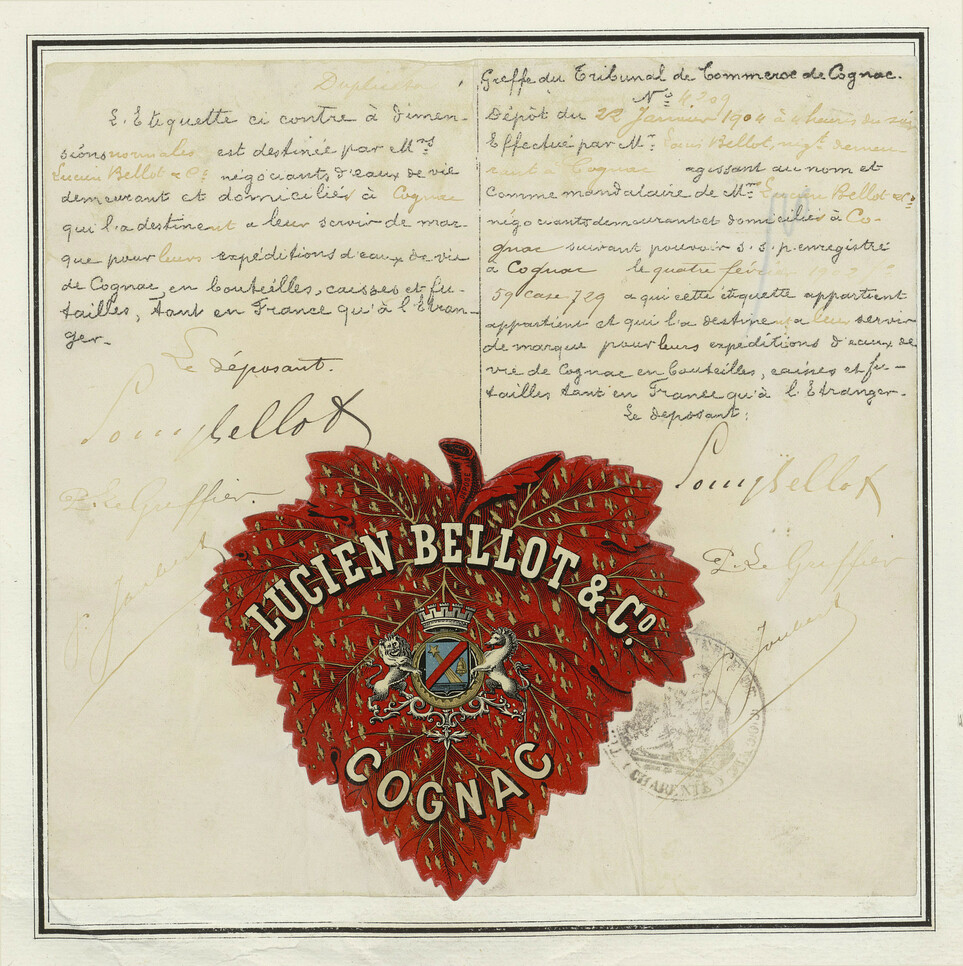 Duplicata
L'Etiquette ci contre à dimen-
sions normales est destinée par Mrs
Lucien Bellot & Co négociants d'eaux de vie
demeurant et domiciliés à Cognac
qui l'a destinent a leur servir de mar-
que pour leurs expéditions d'eaux de vie
de Cognac, en bouteilles, caisses et fu-
tailles, tant en France qu'à l'Etran-
ger.
Le déposant.
Louis Bellot
P. Le Greffier.
Joubert
Greffe du Tribunal de Commerce de Cognac.
No 4.209
Dépôt du 22 Janvier 1904 à 4 heures du soir
Effectué par Mr Louis Bellot, négt demeu-
rant à Cognac agissant au nom et
comme mandataire de Mrs Lucien Bellot & Co
négociants demeurant et domiciliés à Co-
gnac suivant pouvoir s.s.p. enregistré
à Cognac le quatre février fo
59 case 729 a qui cette étiquette appartient
appartient et qui l'a destinent a leur servir
de marque pour leurs expéditions d'eaux de
vie de Cognac en bouteilles, caisses et fu-
tailles tant en France qu'à l'Etranger.
Le deposant:
Louis Bellot
P. Le Greffier
Joubert
LUCIEN BELLOT & Co.
COGNAC
CHARENTE